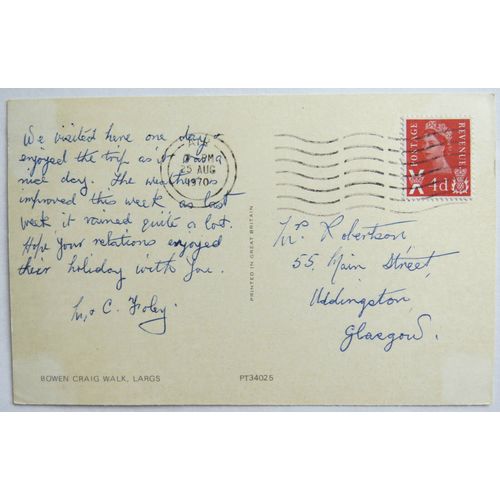 We visited here one day &
enjoyed the trip as it was a
nice day. The weather is
improved this week as last
week it rained quite a lot.
Hope your relations enjoyed
their holiday with you.
Mrs C. Foley.
BOWEN CRAIG WALK, LARGS
PT34025
PRINTED IN GREAT BRITAIN
PM
25 AUG
1970
POSTAGE
REVENUE
4d
Mrs Robertson
55, Main Street,
Uddingston,
Glasgow.